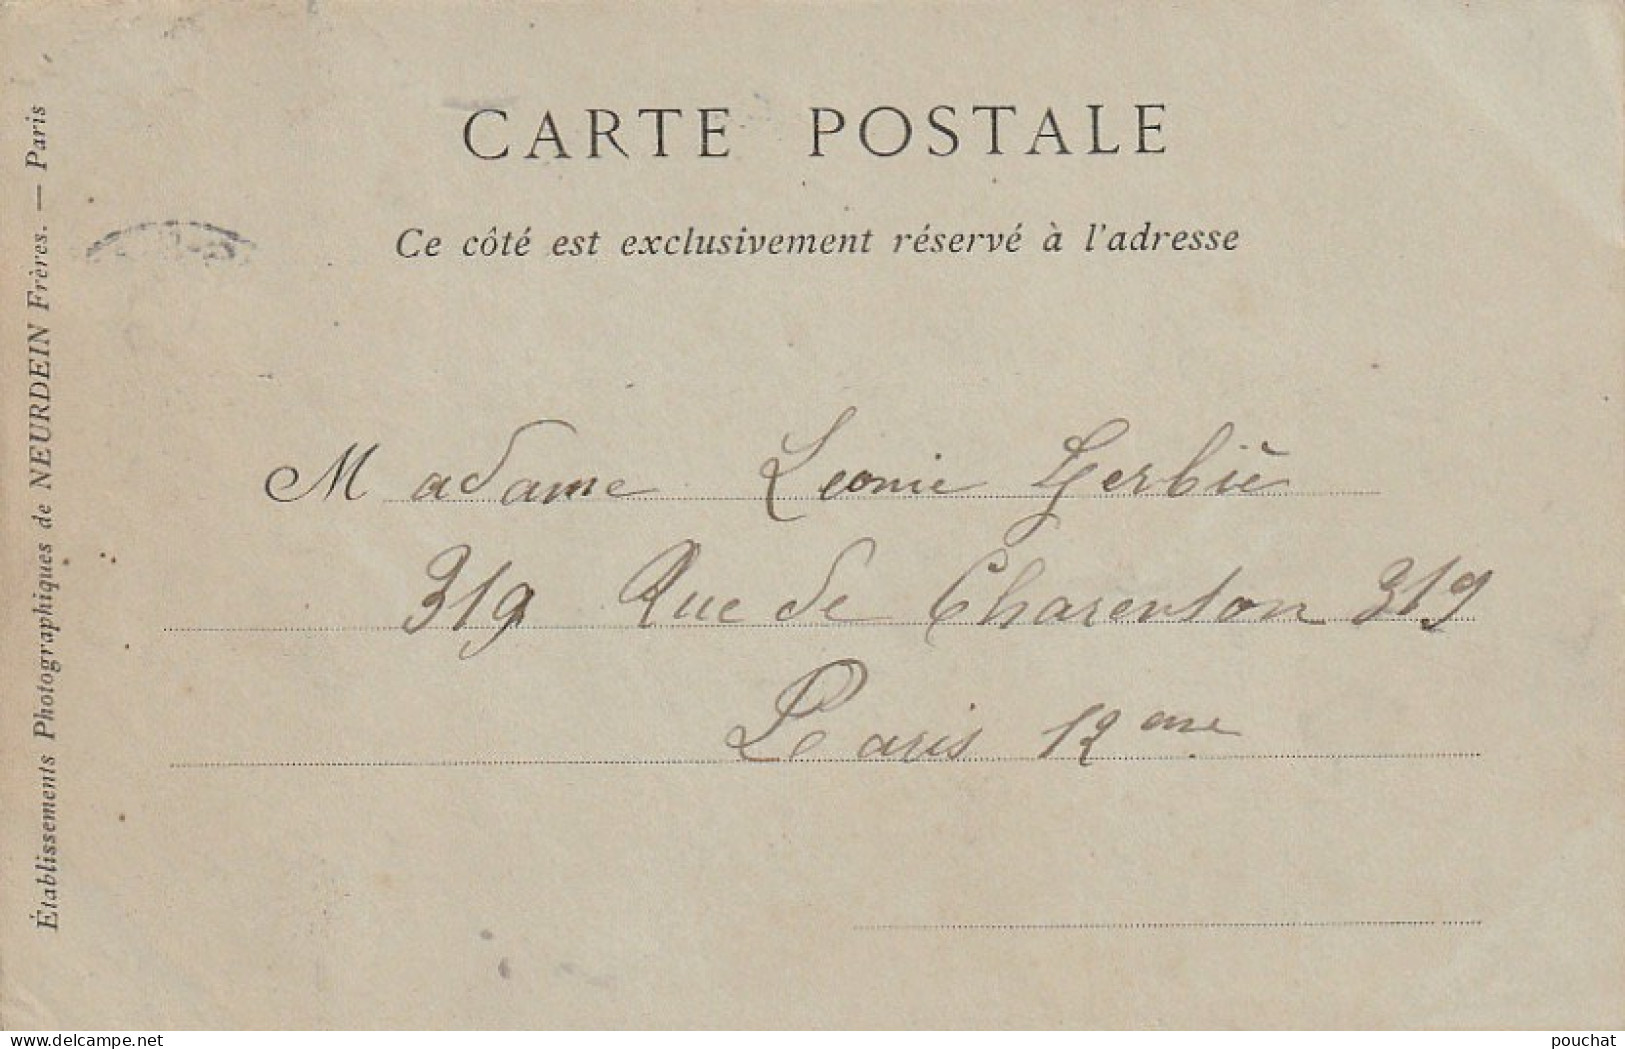 CARTE POSTALE
Ce côté est exclusivement réservé à l'adresse
Madame Leonie Gerbiè
319 Rue de Charenton 319
Paris 12eme
Établissements Photographiques de NEURDEIN Frères. — Paris
www.delcampe.net
pouchat